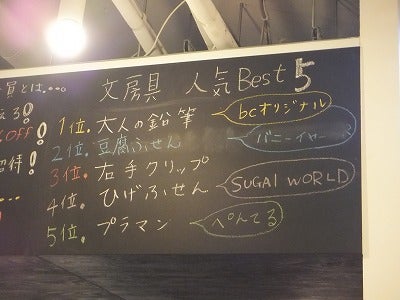 文房具 人気Best5
員とは....
える!
OFF!
招待!
1位. 大人の鉛筆 bcオリジナル
2位. 豆腐ふせん バニーイヤー
3位. 右手クリップ
4位. ひげふせん SUGAI WORLD
5位. プラマン ぺんてる